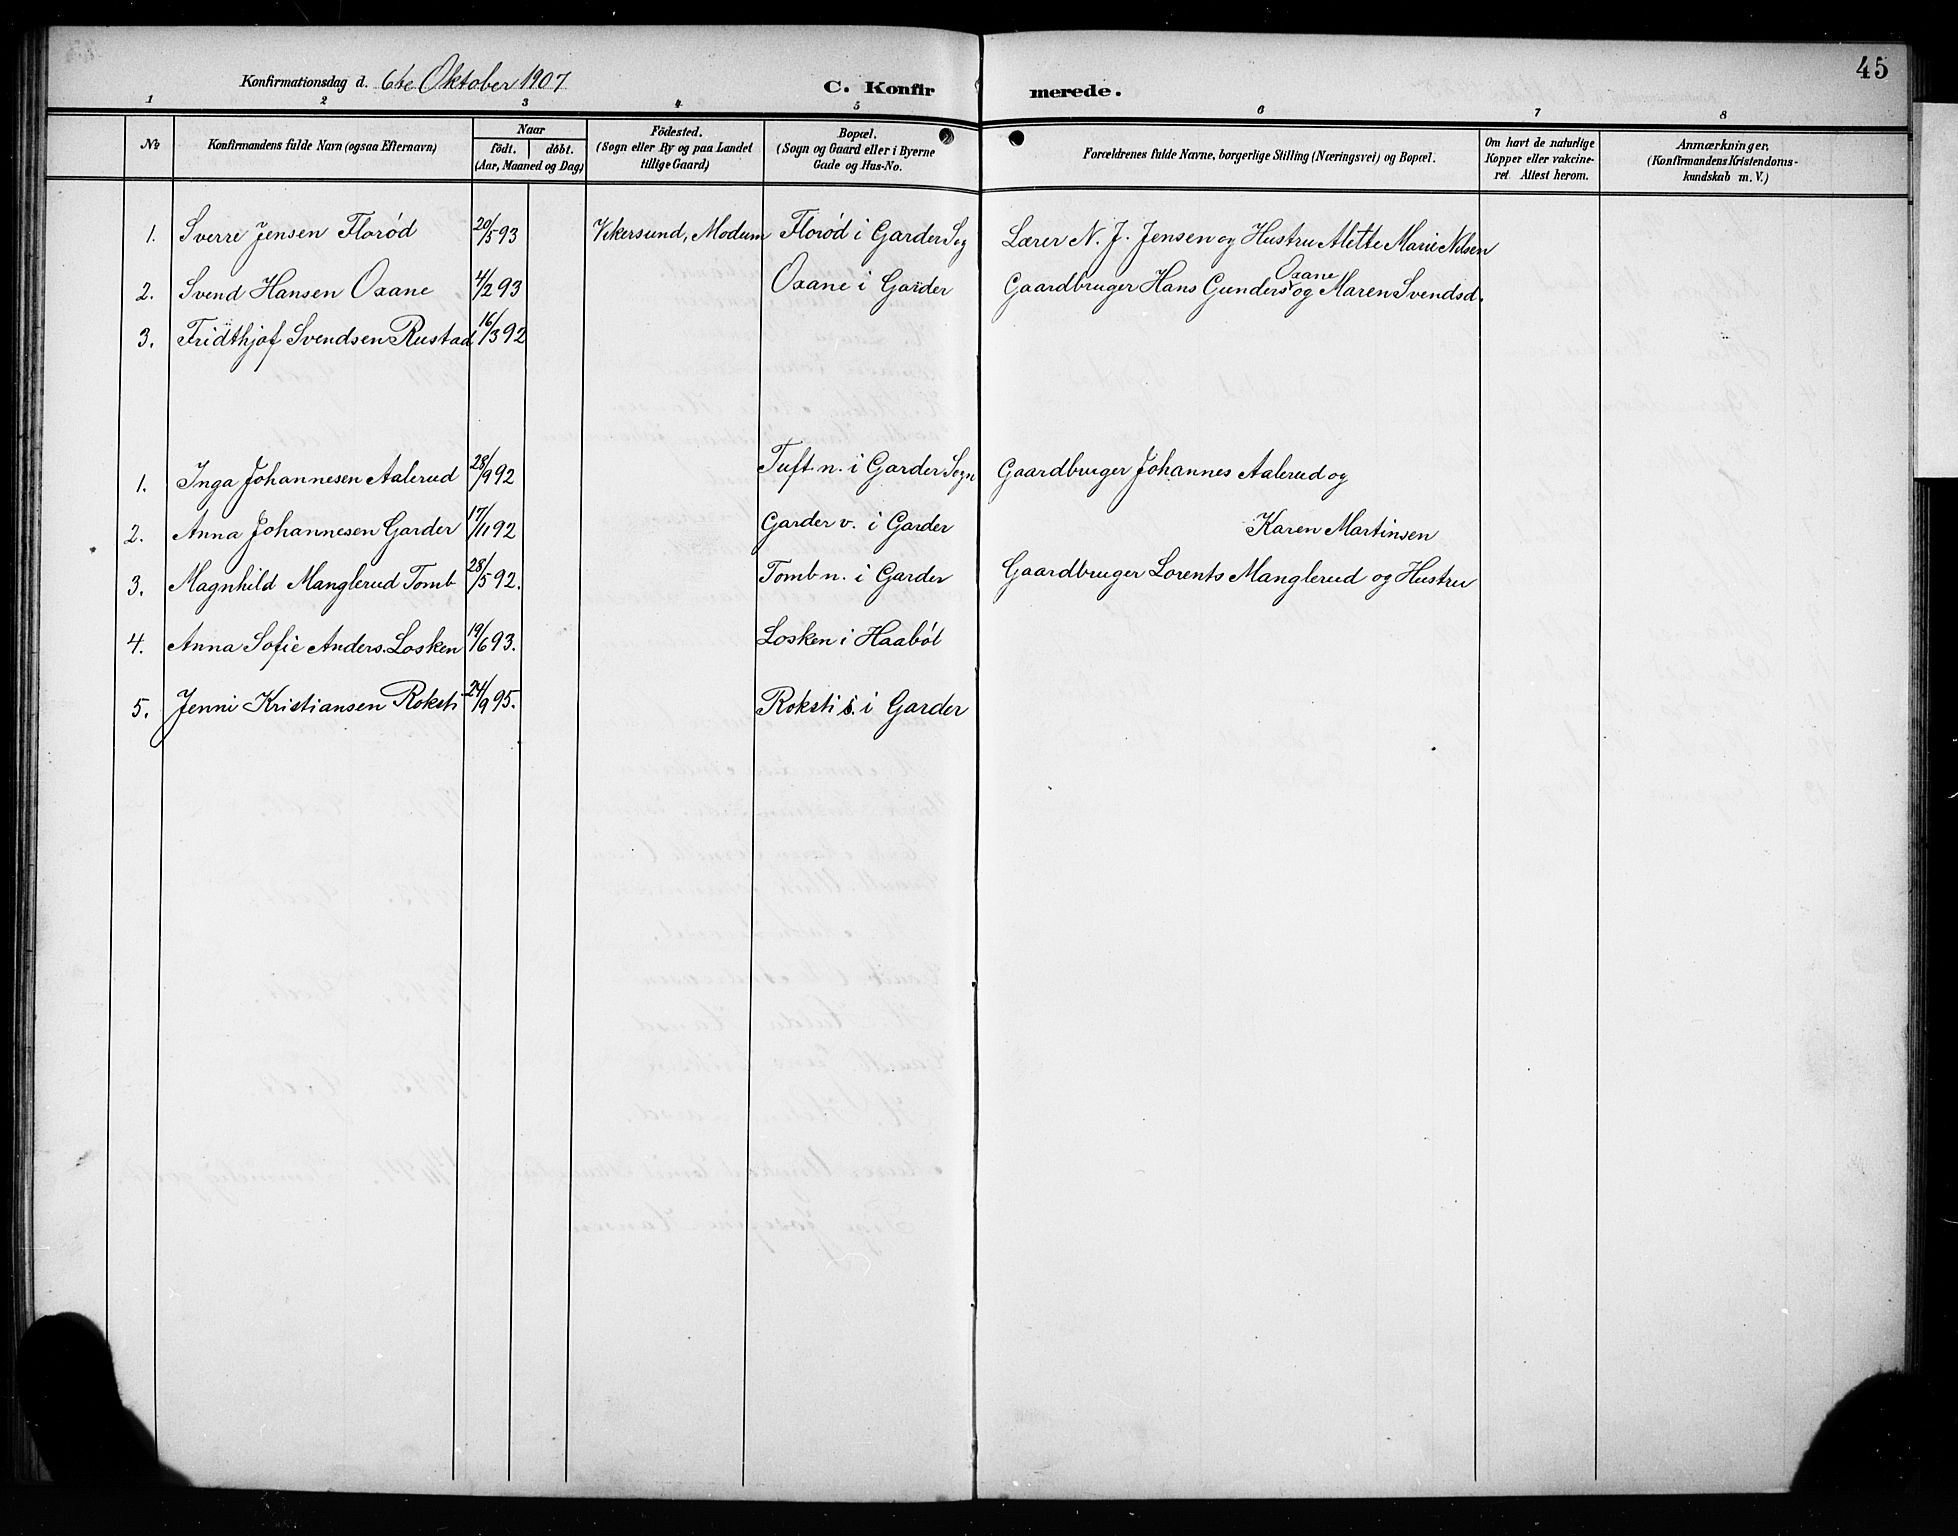 45
Konfirmationsdag d. 6te Oktober 1907
C. Konfirmerede.
1 2 3 4 5 6 7 8
No
Konfirmandens fulde Navn (ogsaa Efternavn)
Naar
födt. döbt.
(Aar, Maaned og Dag)
Födested.
(Sogn eller By og paa Landet
tillige Gaard)
Bopæl.
(Sogn og Gaard eller i Byerne
Gade og Hus-No.
Forældrenes fulde Navne, borgerlige Stilling (Næringsvei) og Bopæl.
Om havt de naturlige
Kopper eller vakcine-
ret. Attest herom.
Anmærkninger,
(Konfirmandens Kristendoms-
kundskab m. V.)
1. Sverre Jensen Florød 20/5 93 Vikersund, Modum Florød i Garder Sog Lærer N. J. Jensen og Hustru Alette Marie Nilsen
2. Svend Hansen Oxane 4/2 93 Oxane i Garder Gaardbruger Hans Gunders Oxane og Maren Svendsd.
3. Fridthjof Svendsen Rustad 16/3 92
1. Inga Johannesen Aalerud 28/9 92 Tuft. n. i Garder Sogn Gaardbruger Johannes Aalerud og
2. Anna Johannesen Garder 17/11 92 Garder v. i Garder Karen Martinsen
3. Magnhild Manglerud Tomb 28/5 92. Tomb n. i Garder Gaardbruger Lorents Manglerud og Hustru
4. Anna Sofie Anders. Losken 19/6 93. Losken i Haabøl
5. Jenni Kristiansen Roksti 24/9 95. Roksti s. i Garder